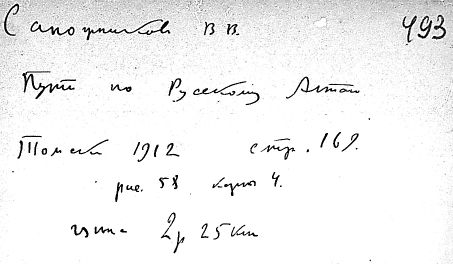 Сапожников В В. 493
Пути по Русскому Алтаю
Томск 1912 стр. 169.
рис. 58 карт 4.
цена 2р 25 коп